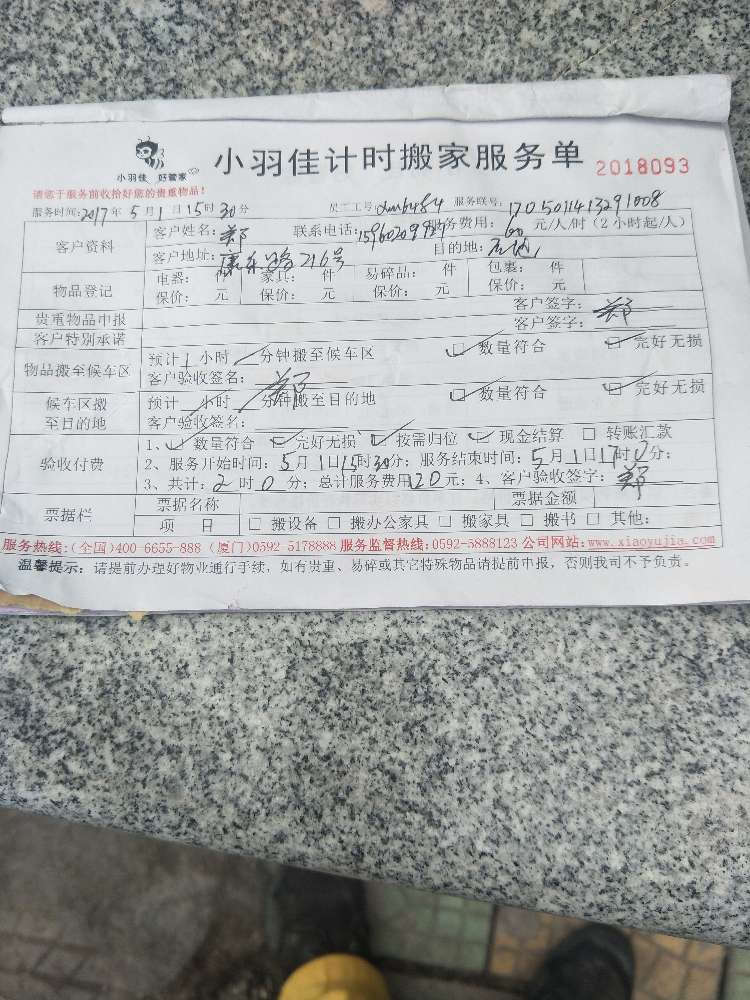 小羽佳 好管家
小羽佳计时搬家服务单 2018093
请您于服务前收拾好您的贵重物品!
服务时间:2017年5月1日15时30分 员工工号 服务联号: 1705011413291008
客户资料 客户姓名:郑 联系电话: 服务费用:60元/人/时(2小时起/人)
客户地址:康乐路216号 目的地:
物品登记 电器: 件 家具: 件 易碎品: 件 包裹: 件
保价: 元 保价: 元 保价: 元 保价: 元
贵重物品申报 客户签字:郑
客户特别承诺 客户签字:
物品搬至候车区 预计1小时 分钟搬至候车区 ☑ 数量符合 ☑ 完好无损
客户验收签名:郑
候车区搬至目的地 预计 小时 分钟搬至目的地 ☑ 数量符合 ☑ 完好无损
客户验收签名:
验收付费 1、☑ 数量符合 ☑ 完好无损 ☑ 按需归位 ☑ 现金结算 □ 转账汇款
2、服务开始时间:5月1日15时30分; 服务结束时间:5月1日17时0分;
3、共计:2时0分;总计服务费用120元; 4、客户验收签字:郑
票据栏 票据名称 票据金额
项 目 □ 搬设备 □ 搬办公家具 □ 搬家具 □ 搬书 □ 其他:
服务热线:(全国)400-6655-888 (厦门)0592-5178888 服务监督热线:0592-5888123 公司网站:www.xiaoyujia.com
温馨提示: 请提前办理好物业通行手续, 如有贵重、易碎或其它特殊物品请提前申报, 否则我司不予负责。